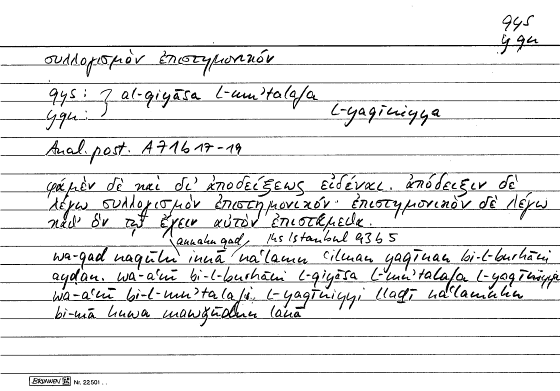 qys
yqn
συλλογισμὸν ἐπιστημονικόν
qys : } al-qiyāsa l-mu'talafa
yqn : l-yaqīniyya
Anal. post. A 71b 17-19
φάμὲν δὲ καὶ δι' ἀποδείξεως εἰδέναι. ἀπόδειξιν δὲ
λέγω συλλογισμὸν ἐπιστημονικόν· ἐπιστημονικὸν δὲ λέγω
καθ' ὃν τῷ ἔχειν αὐτὸν ἐπιστάμεθα.
annahu qad, Ms Istanbul 9365
wa-qad naqūlu innā na'lamu 'ilman yaqīnan bi-l-burhāni
ayḍan. wa-a'nī bi-l-burhāni l-qiyāsa l-mu'talafa l-yaqīniyya
wa-a'nī bi-l-mu'talafi l-yaqīniyyi llaḏī na'lamuhu
bi-mā huwa mawǧūdun lanā
BRUNNEN Nr. 22 501